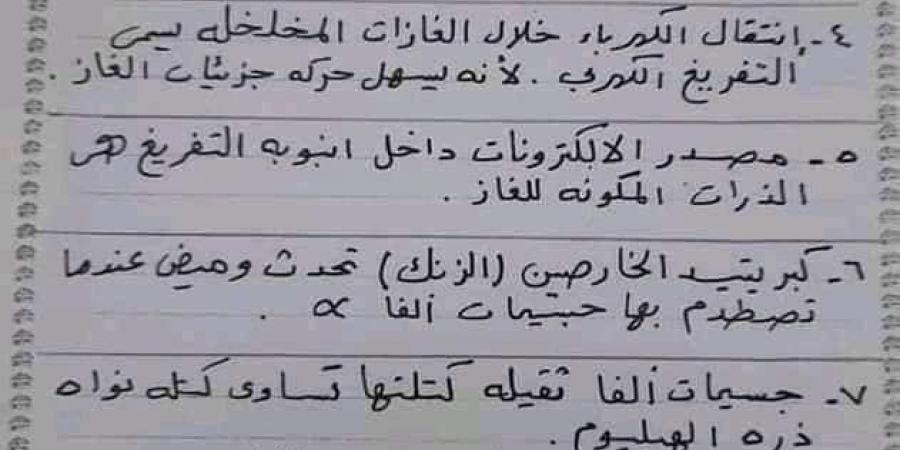 ٤- إنتقال الكهرباء خلال الغازات المخلخله يسمى
التفريغ الكهربى . لأنه يسهل حركه جزيئات الغاز .
٥- مصدر الالكترونات داخل انبوبه التفريغ هى
الذرات المكونه للغاز .
٦- كبريتيد الخارصين (الزنك) تحدث وميض عندما
تصطدم بها جسيمات ألفا α .
٧- جسيمات ألفا ثقيله كتلتها تساوى كتله نواه
ذره الهيليوم .